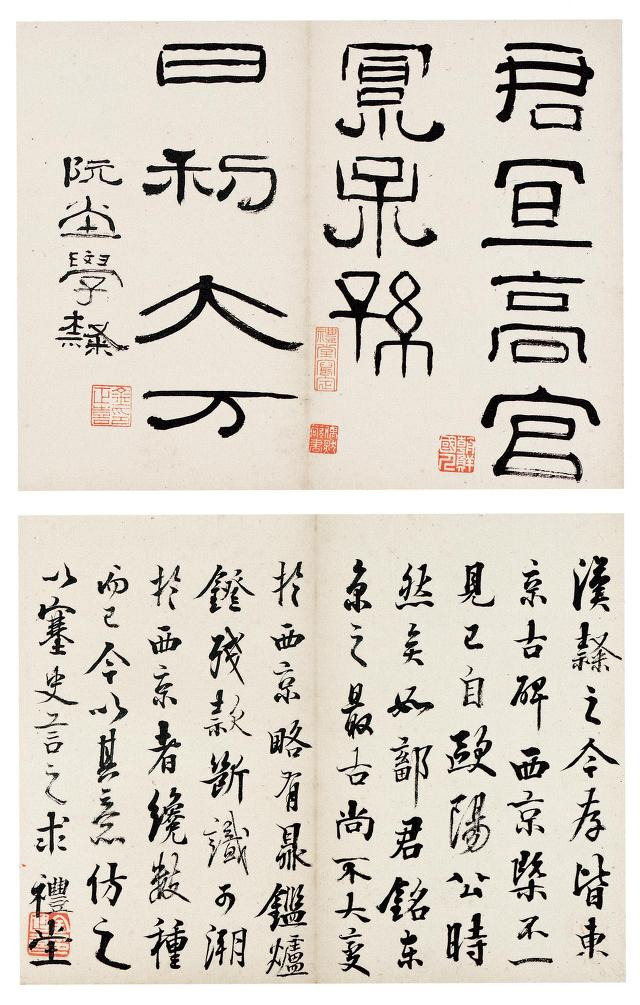 君宜高官
呆孫
日利大万
阮堂學隸
金正喜印
禮堂寫定
朝鮮國人
漢隸之今存皆東
京古碑西京槩不一
見已自歐陽公時
然矣如鄐君銘東
京之最古尚不大變
於西京略有鼎鑑爐
鐙殘款斷識可溯
於西京者纔數種
而已今以其意仿之
以塞史言之求 禮堂